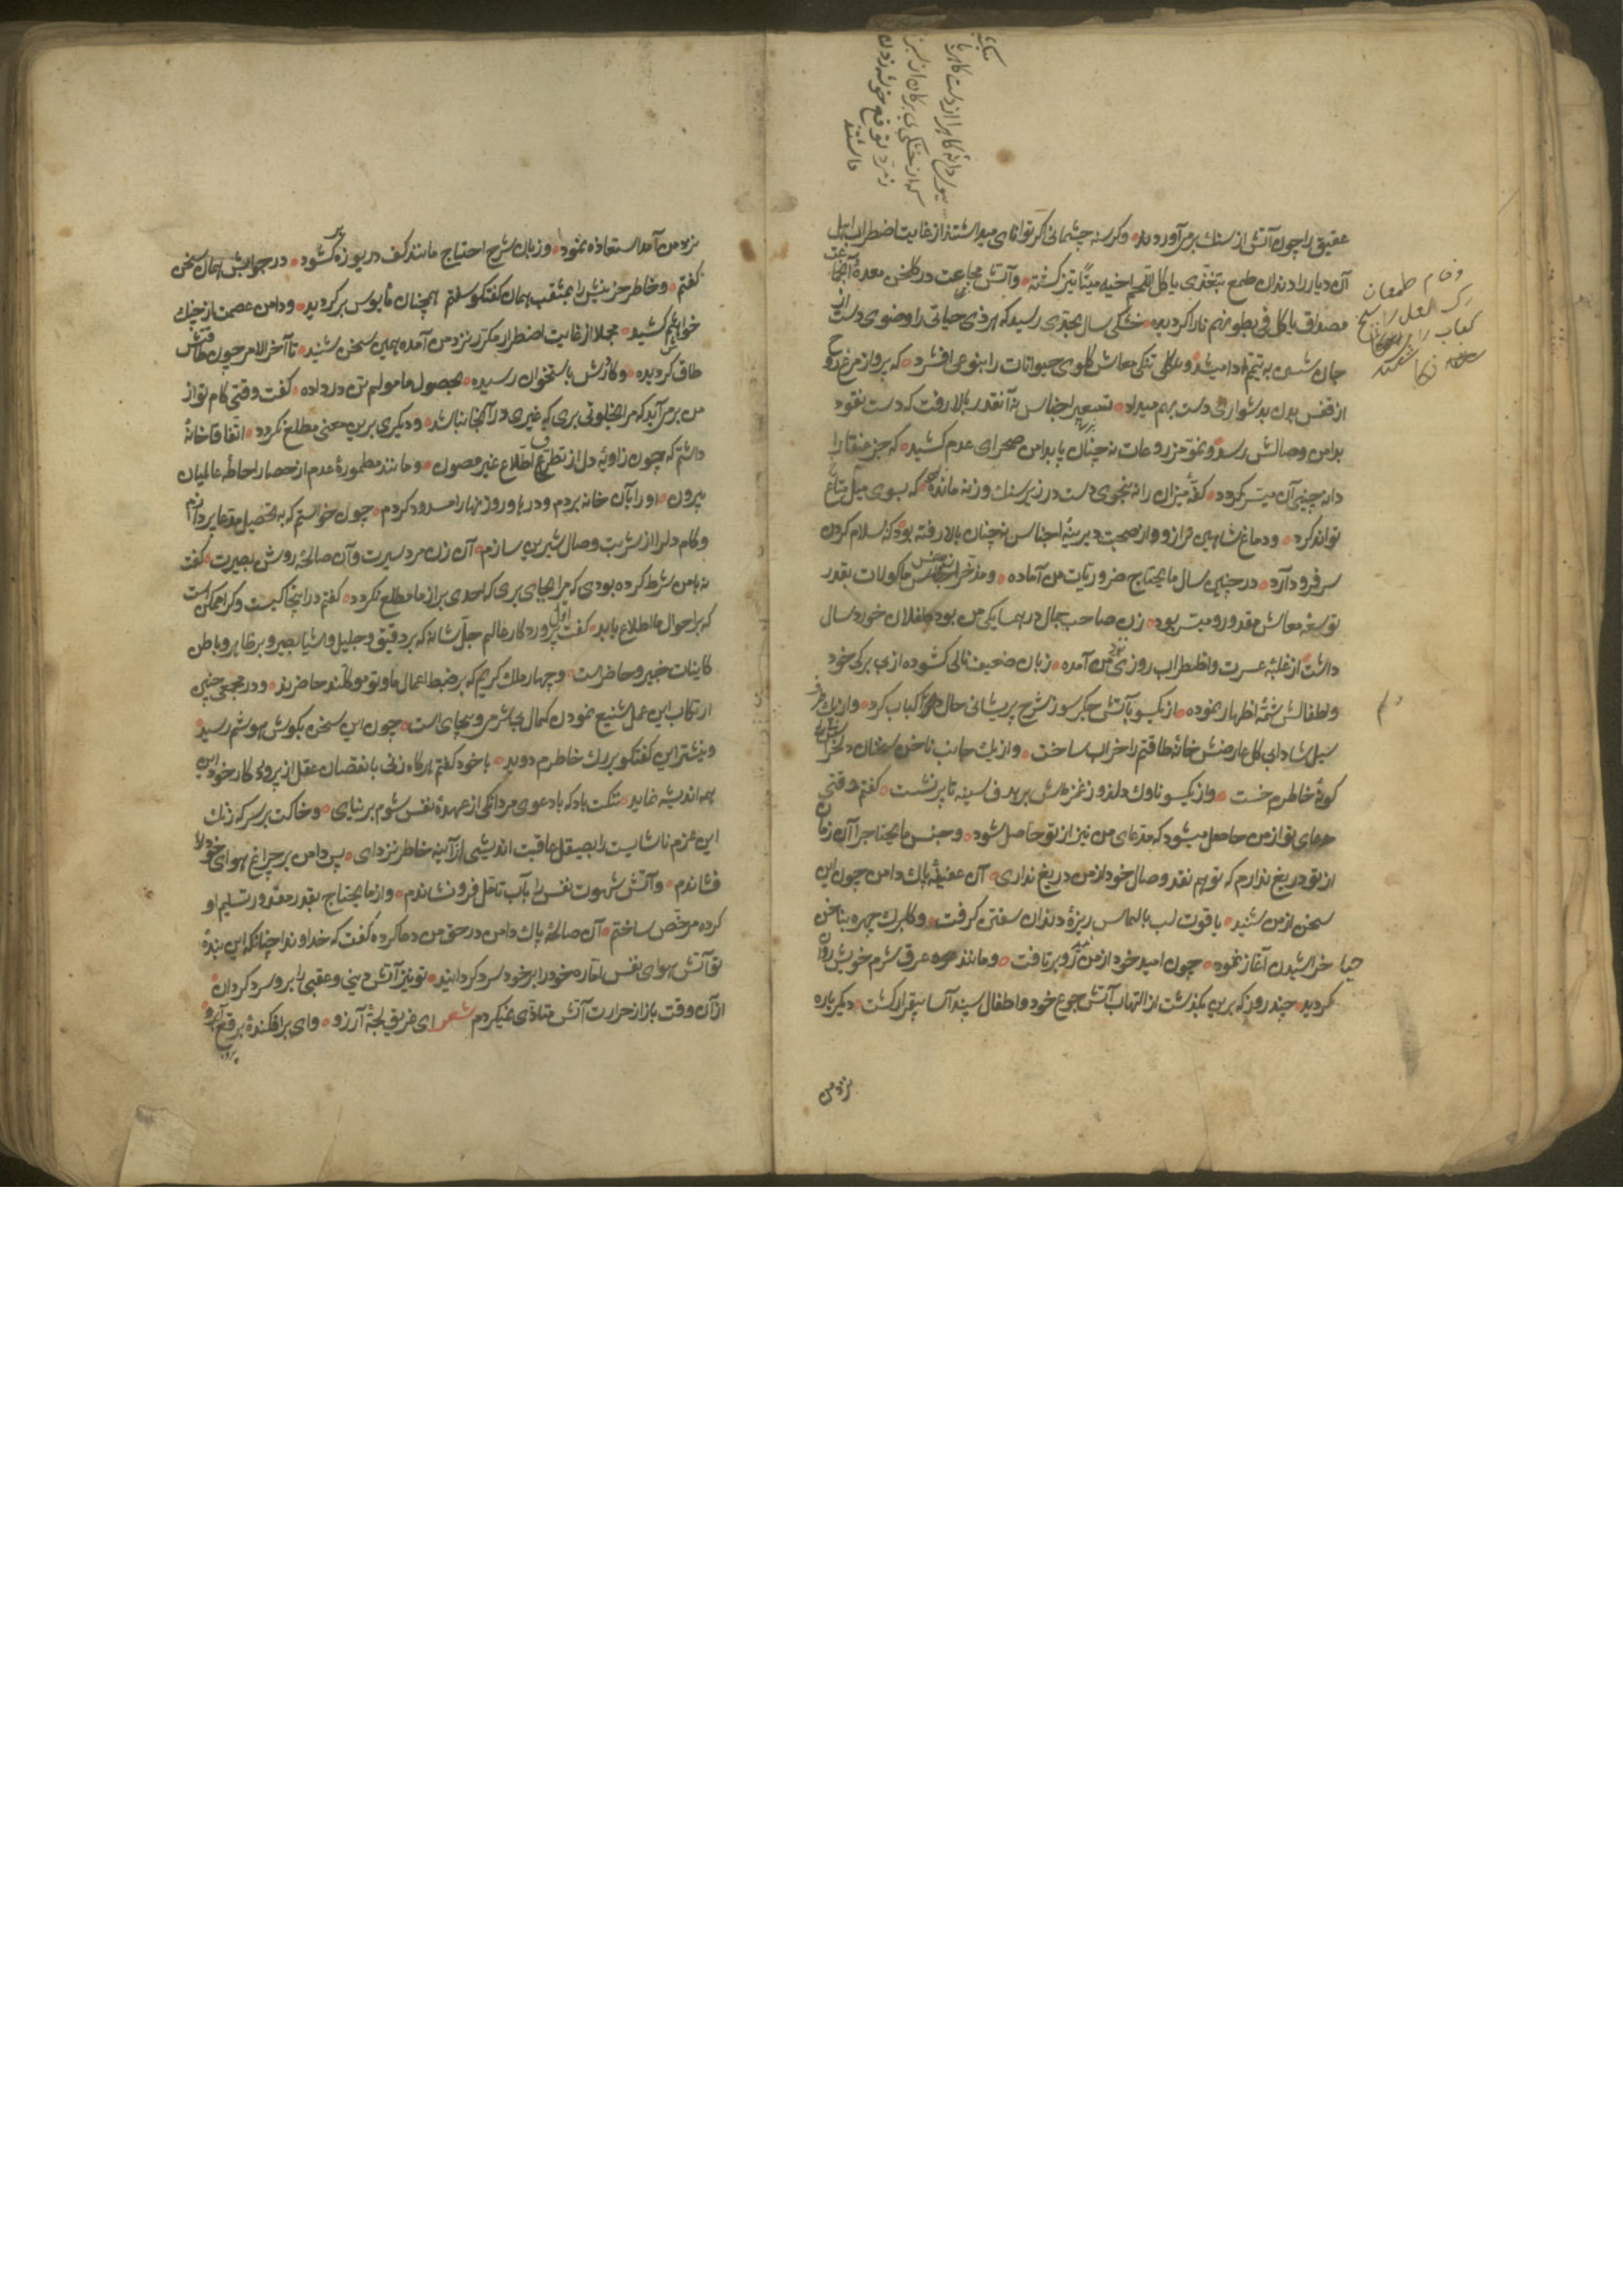 عقیق را چون آتش از سنك برمی آوردند وكرسنه چشمانی اكر توانای میداشتند از غایت اضطراب اهل
آن دیار را دندان طمع بتغذی یاكل لحم اخیه میتاً تیز كشته وآتش مجاعت در كلخن معدهٔ آنجا
مصداق یاكل فی بطونهم نارا كردیده خشكی سال بحدی رسید كه هر ذی حیاتی را وضوی دست از
جان شستن به تیمم ادا میشد وتنكی معاش كلوی حیوانات را بنوعی افشرد كه پرواز مرغ روح
از قفس بدن بدشواری دست بهم میداد تسعیر اجناس نه آنقدر بالا رفت كه دست نقود
بدامن وصالش رسد ونمو مزروعات نه چنان پا بدامن صحرای عدم كشید كه جز عنقا را
دانه چینی آن میسر كردد كفهٔ میزان را نه پنجوی دست در زیر سنك وزنه مانده كه بسوی میل متاع
تواند كرد ودماغ شاهین ترازو از صحبت دیرینهٔ اجناس نه چنان بالا رفته بود كه بسلام كردن
سر فرود آرد در چنین سال ما یحتاج ضروریات من آماده ومدخر اجناس ماكولات بقدر
توسعهٔ معاش مقدور ومیسر بود زن صاحب جمال در همسایكی من بود طفلان خورد سال
داشت از غلبهٔ عسرت واظطراب روزی من آمده زبان ضعیف نالی كشوده از بی بركی خود
واطفالش شمهٔ اظهار نموده از یكسو بآتش جكر سوز شرح پریشانی حال مرا كباب كرد واز یك طرف
سیل شادابی كل عارضش خانهٔ طاقتم را خراب ساخت واز یك جانب ناخن سخنان دلخراش
كونهٔ خاطرم خست واز یكسو ناوك دلدوز غمزه اش بر هدف سینه تا پر نشست كفتم وقتی
مدعای تو از من حاصل میشود كه مدعای من نیز از تو حاصل شود وجنس ما یحتاج را آن زمان
از تو دریغ ندارم كه تو هم نقد وصال خود از من دریغ نداری آن عفیفهٔ پاك دامن چون این
سخن از من شنید یاقوت لب بالماس ریزهٔ دندان سفتن كرفت وكلبرك چهره بناخن
حیا خراشیدن آغاز نمود چون امید خود از من رو برتافت ومانند عرق شرم خویش روان
كردید چند روز كه برین بكذشت از التهاب آتش جوع خود واطفال سپند آسا بیقرار كشت دیكر باره
نزد من
نزد من آمد استعاذه نمود وزبان شرح احتیاج مانند كف دریوزه كشود در جوابش همان سخن
كفتم وخاطر حزینش را بمثقب همان كفتكو سفتم همچنان مأیوس بركردید ودامن عصمت از چنك
خواهشم كشید مجملا از غایت اضطرار مكرر نزد من آمده همین سخن شنید تا آخر الامر چون طاقتش
طاق كردیده وكاردش باستخوان رسیده بحصول مامولم تن در داده كفت وقتی كام تو از
من برمی آید كه مرا بخلوتی بری كه غیری در آنجا نباشد ودیكری برین معنی مطلع نكردد اتفاقا خانهٔ
داشتم كه چون زاویهٔ دل از تطرق اطلاع غیر مصون ومانند مطمورهٔ عدم از حصار احاطهٔ عالمیان
بیرون او را بآن خانه بردم ودرها وروزنها را مسدود كردم چون خواستم كه به تحصیل مدعا پردازم
وكام دلرا از شربت وصال شیرین سازم آن زن مرد سیرت وآن صالحهٔ روشن بصیرت كفت
نه با من شرط كرده بودی كه مرا بجای بری كه احدی بر راز ما مطلع نكردد كفتم در اینجا كیست وكرا ممكن است
كه بر احوال ما اطلاع یابد كفت اول پروردكار عالم جل شانه كه بر دقیق وجلیل اشیا بصیر وبر ظاهر وباطن
كاینات خبیر وحاضر است وچهار ملك كریم كه بر ضبط اعمال ما وتو موكلند حاضرند ودر مجمعی چنین
ارتكاب این عمل شنیع نمودن كمال بی شرمی وبیجای است چون این سخن بكوش هوشم رسید
ونیشتر این كفتكو بر رك خاطرم دوید با خود كفتم هركاه زنی با نقصان عقل از پروای كار خود این
همه اندیشه نماید ننكت باد كه با دعوی مردانكی از عهدهٔ نفس شوم برنیای وخاكت بر سر كه زنك
این عزم ناشایست را بصیقل عاقبت اندیشی از آینهٔ خاطر نزدای پس دامن بر چراغ هوای خود
فشاندم وآتش شهوت نفس را بآب تامل فرو نشاندم واز ما یحتاج بقدر مقدور تسلیم او
كرده مرخص ساختم آن صالحهٔ پاك دامن در حق من دعا كرده كفت كه خداوندا چنانكه این بندهٔ
تو آتش هوای نفس اماره خود را بر خود سرد كردانید تو نیز آتش دنیی وعقبی را برو سرد كردان
از آن وقت باز از حرارت آتش متاذی نمیكردم شعر ای غریق لجهٔ آرزو وای برافكندهٔ برقع آبرو